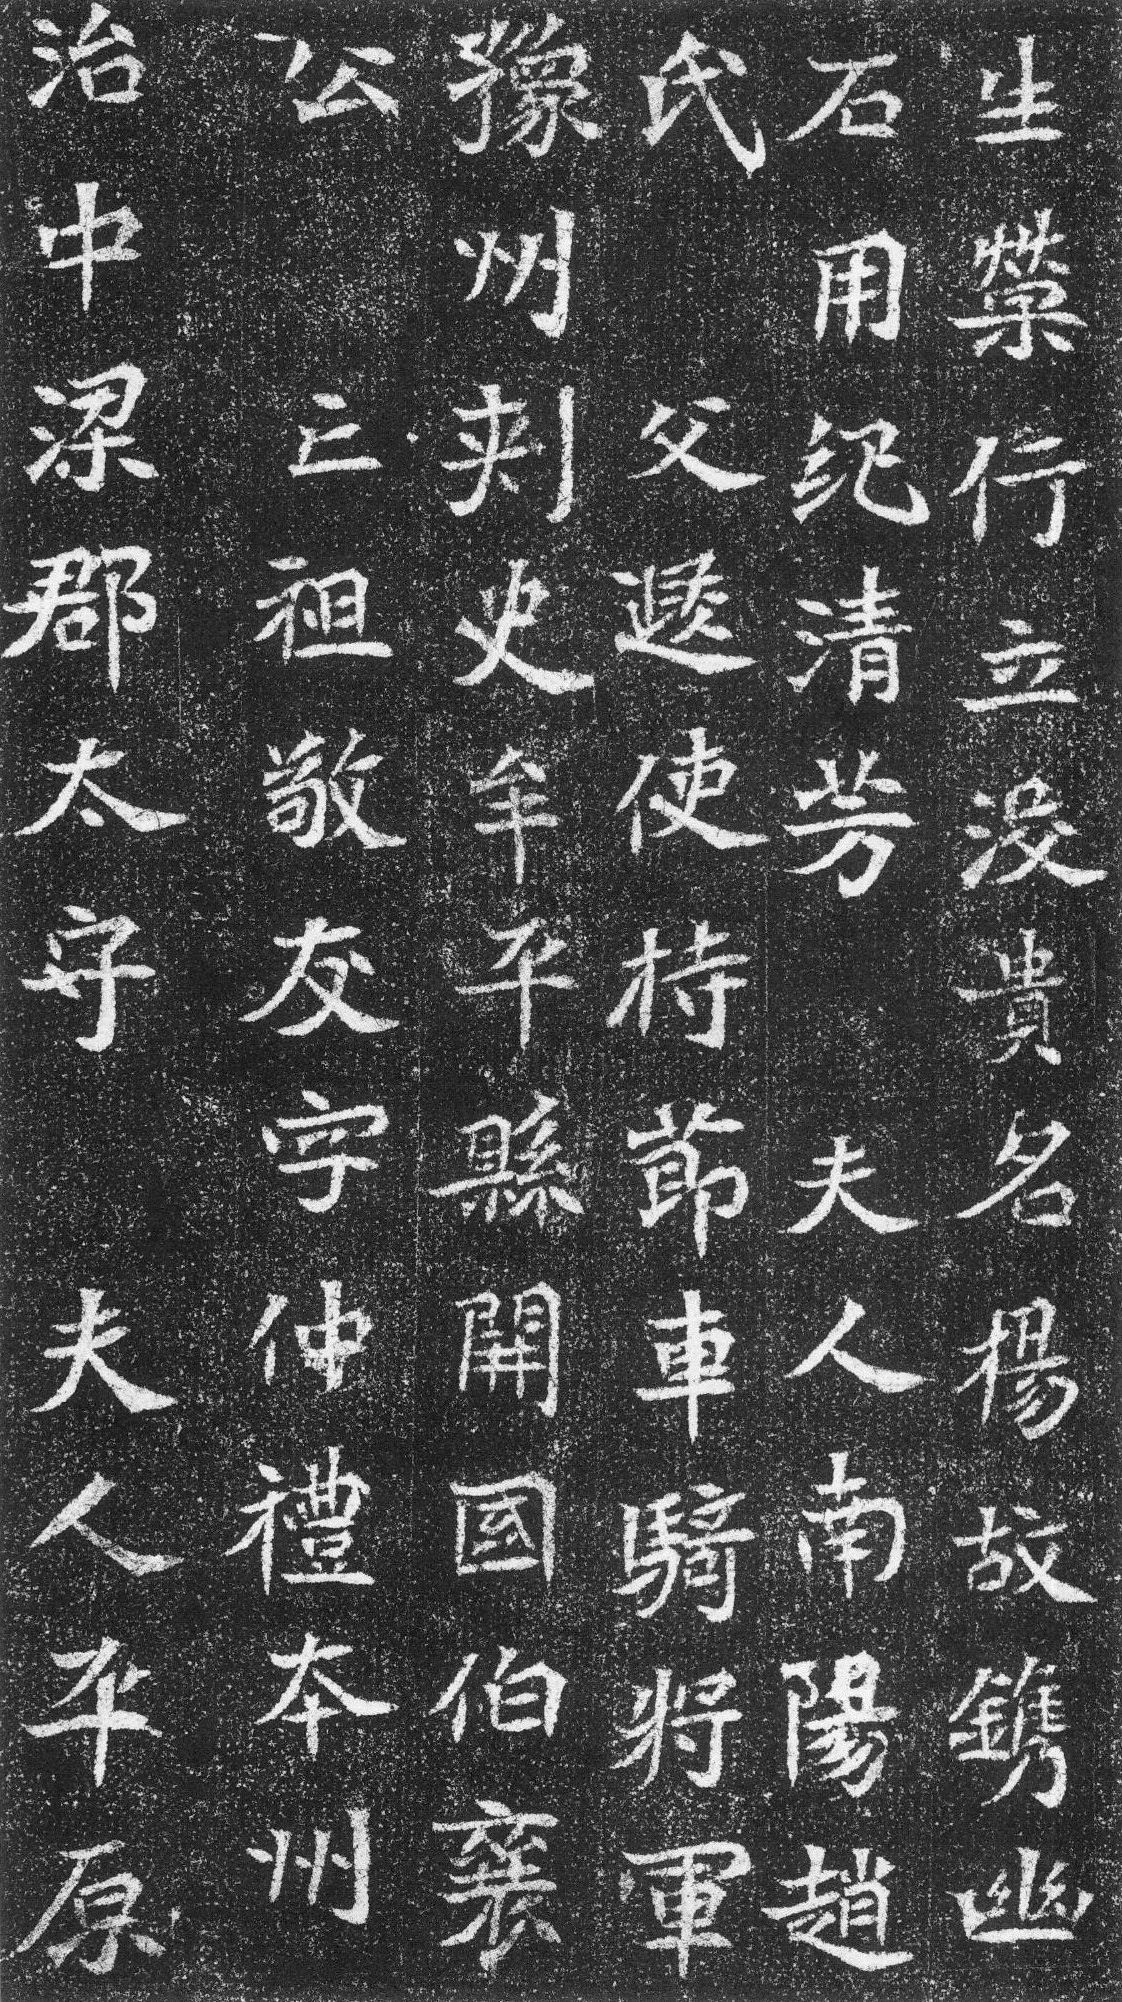 生榮行立没貴名揚故鐫幽
石用紀清芳　夫人南陽趙
氏　父遐使持節車騎將軍
豫州刺史牟平縣開國伯襄
公　亡祖敬友字仲禮本州
治中梁郡太守　夫人平原